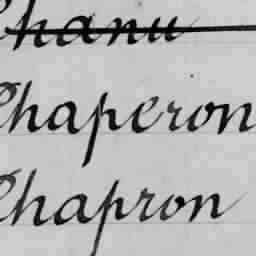 Chanu
Chaperon
Chapron